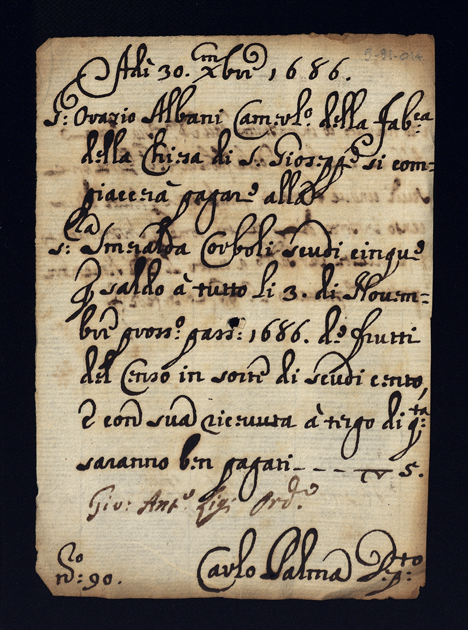 Adi 30. Xbre 1686.
S.r Orazio Albani Camerl.o della Fab.ca
della Chiesa di S. Gioseppe si com-
piacerà pagare alla
S.ra Smeralda Corboli scudi cinque
p saldo à tutto li 3. di Novem-
bre pross.o pass.o 1686. de frutti
del Censo in sorte di scudi cento,
e con sua ricevuta à tergo di q.ta
saranno ben pagati - - - - 5.
Gio: Ant.o Ord.e
N.o 90. Carlo Palma